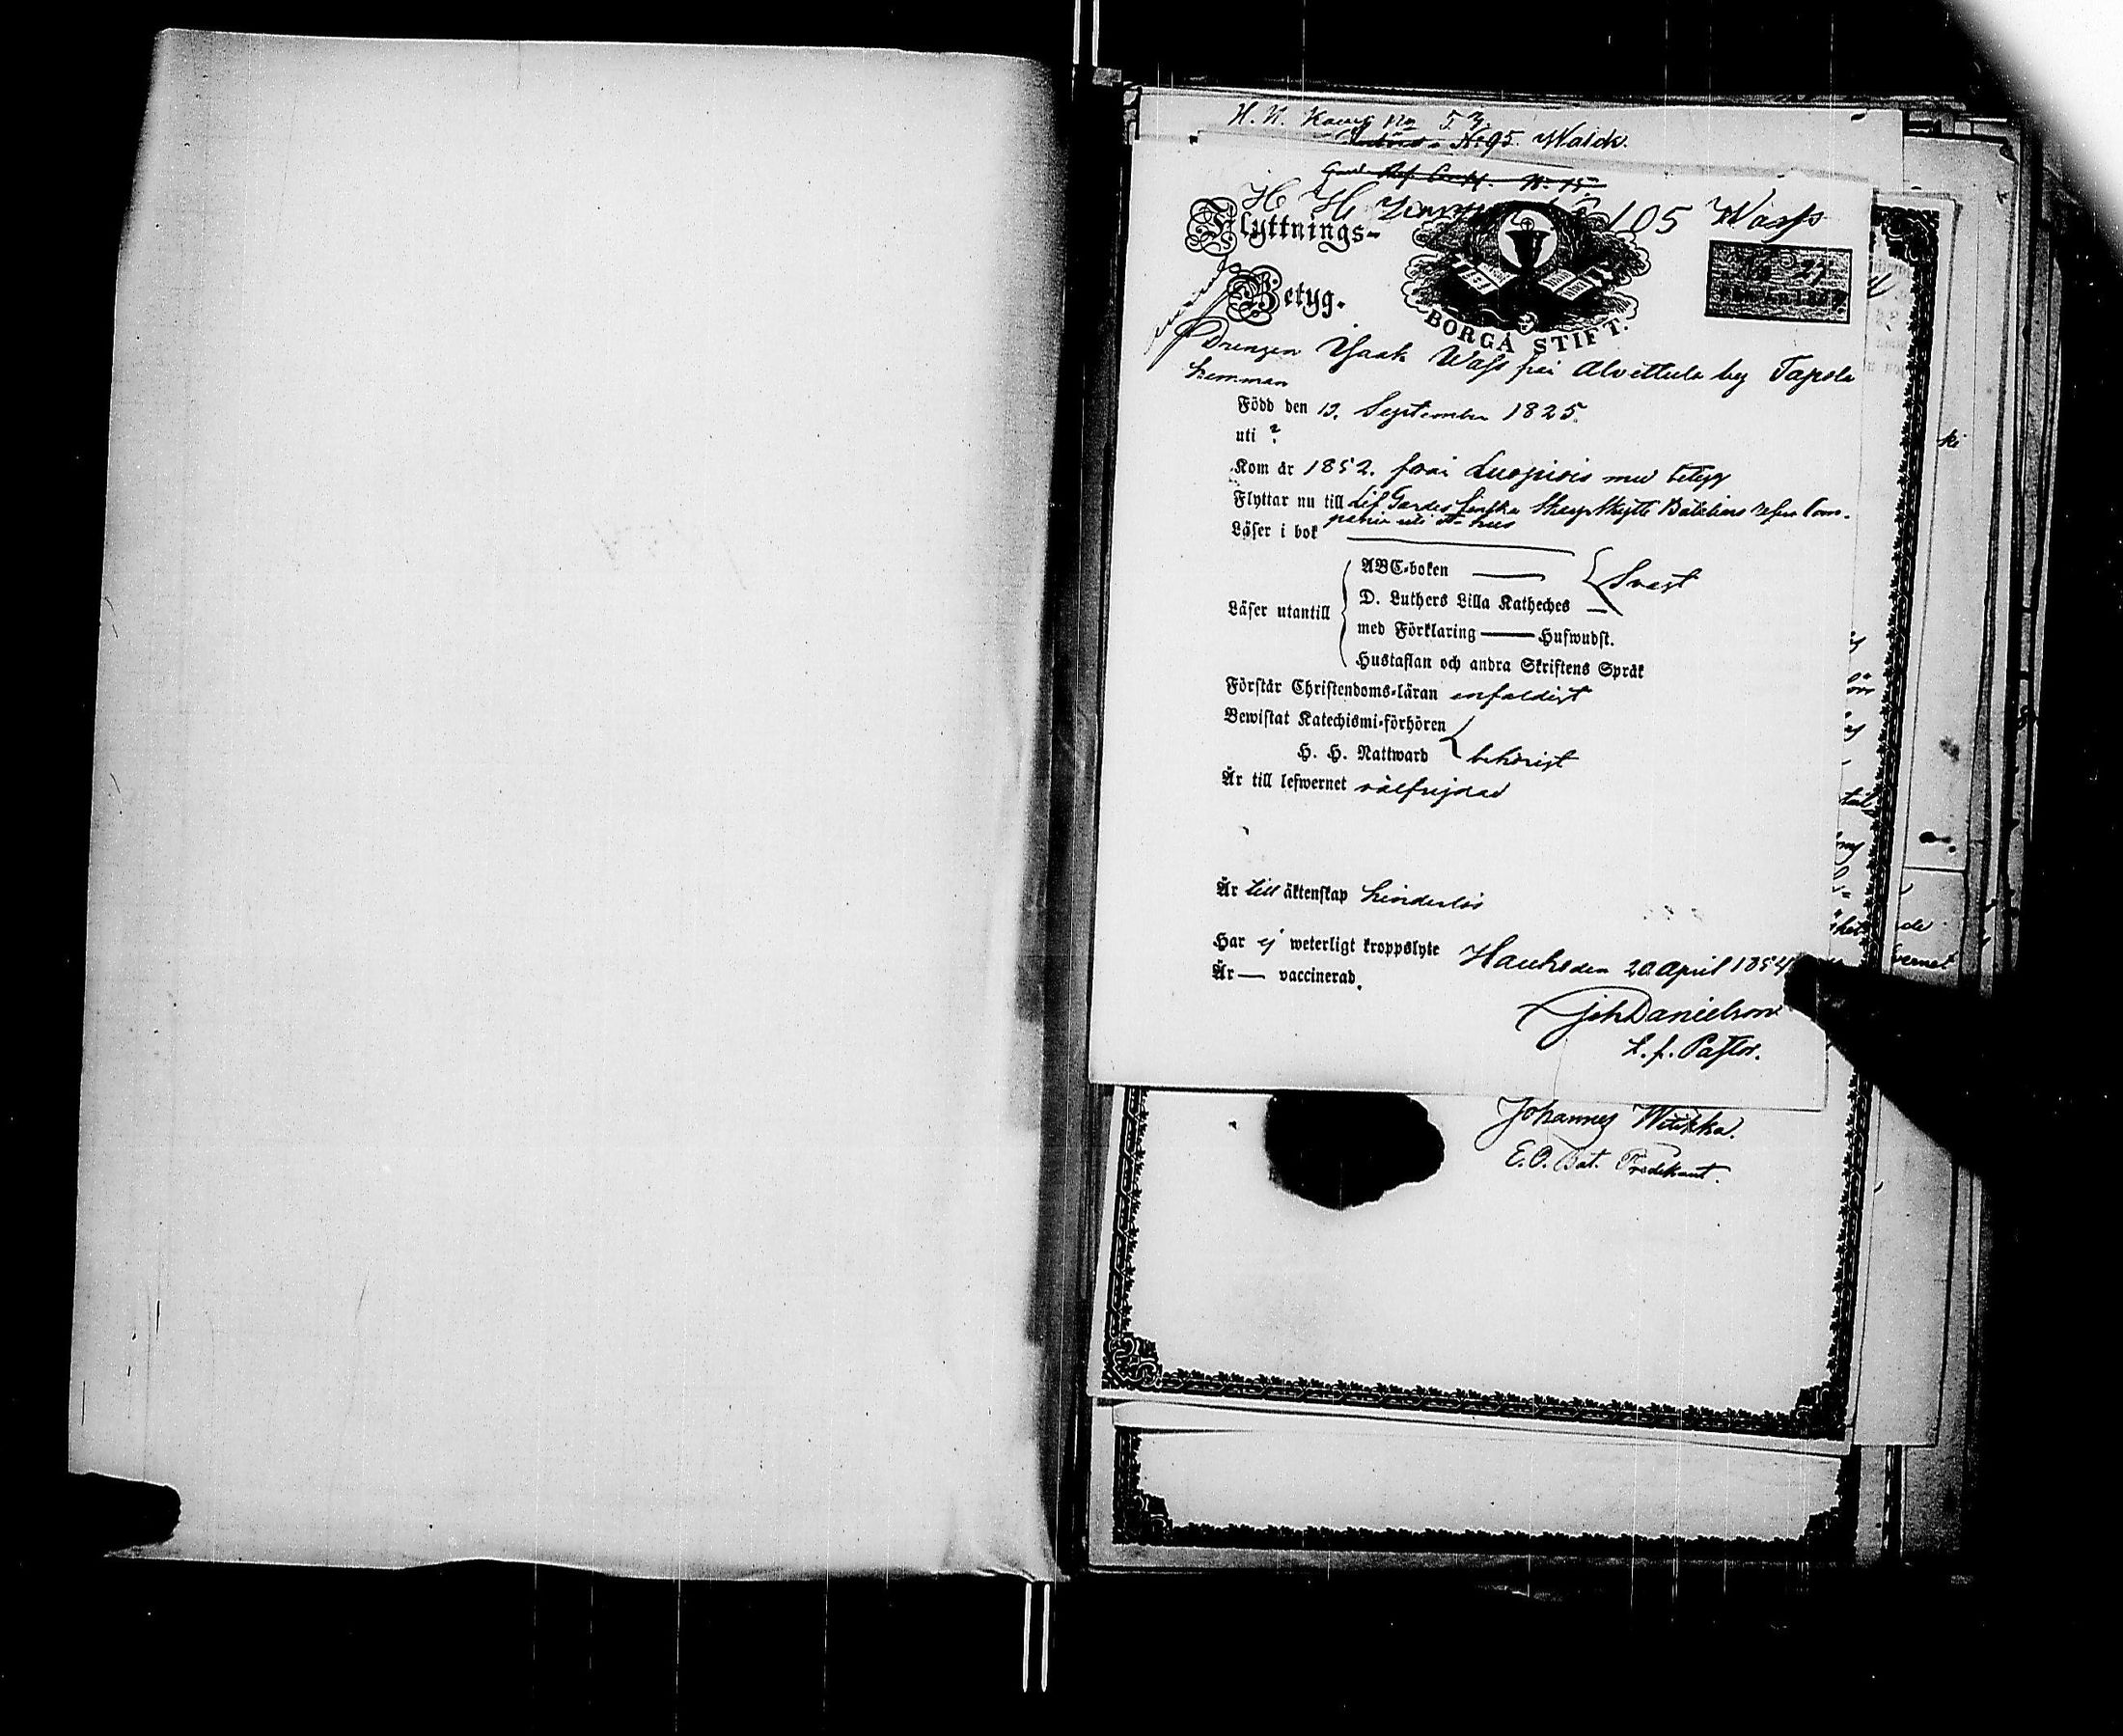 H. K. No 53.
No 95. Walck.
No 15
H. H. 105 Wass
Flyttnings-
Betyg.
BORGÅ STIFT.
Drengen Isaak Wass från Alvettula by Tapola
hemman
Född den 13. September 1825.
uti ?
Kom år 1852. från Luopiois med betyg
Flyttar nu till Lif Gardes Finska Skarpskytte Bataljons Reserv Com-
pani
Läser i bok
ABC-boken
Svagt
D. Luthers Lilla Katheches
Läser utantill
med Förklaring Huswudst.
Hustaflan och andra Skriftens Språk
Förstår Christendoms-läran enfaldigt
Bewistat Katechismi-förhören
H. H. Nattward behörigt
Är till lefwernet välfrejdad
Är till äktenskap hinderlös
Har ej weterligt kroppslyte
Hauho den 20 April 1854
Är — vaccinerad.
Joh Danielson
t. f. Pastor.
Johannes Witikka.
E. O. Bat. Predikant.